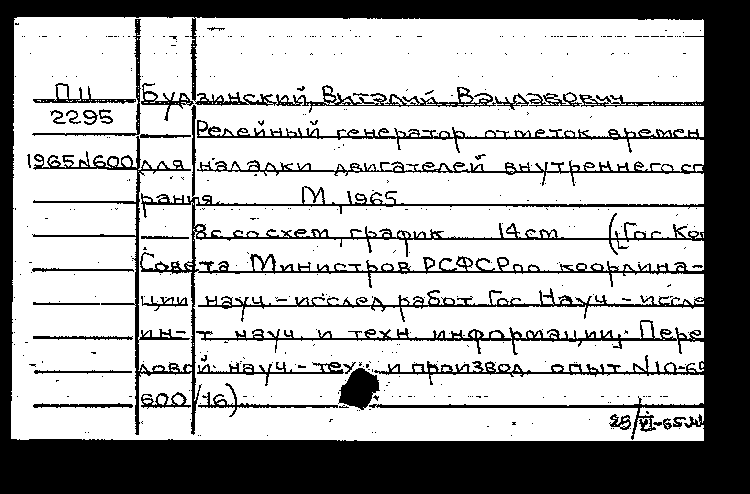 П11 Будзинский, Виталий Вацлавович
2295 Релейный генератор отметок времен
1965 N600 для наладки двигателей внутреннего сго
рания. М., 1965.
8с. со схем, график 14 cm. (Гос. Ко
Совета Министров РСФСР по координа-
ции науч.-исслед работ Гос Науч.-иссле
ин-т науч. и техн информации, Пере
довой науч.-техн и производ. опыт. N10-65
600/16)
28/VI-65